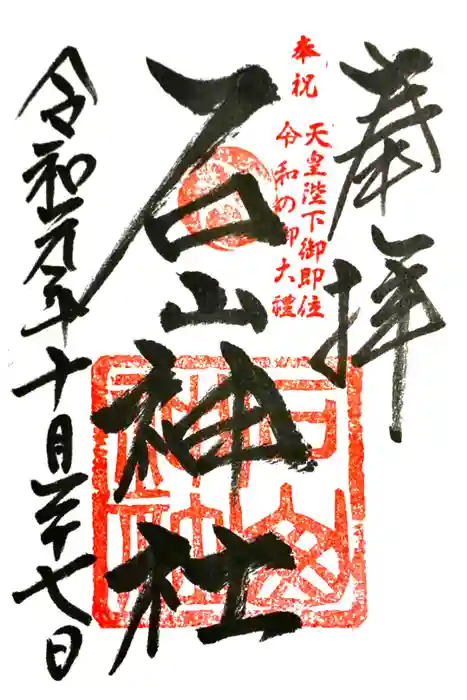 奉拝
奉祝
天皇陛下御即位
令和の御大禮
石山神社
令和元年十月二十七日
石山神社